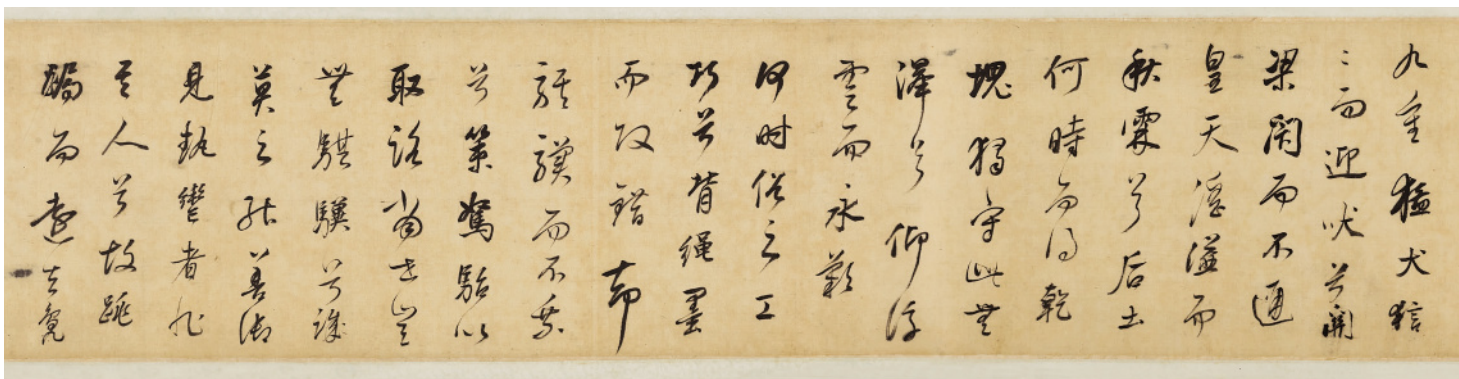 九重猛犬狺
〻而迎吠兮關
梁閉而不通
皇天淫溢而
秋霖兮后土
何時而得乾
塊獨守此無
澤兮仰浮
雲而永歎
何時俗之工
巧兮背繩墨
而改錯却
騏驥而不乘
兮策駑駘以
取路當世豈
無騏驥兮誠
莫之能善御
見執轡者非
其人兮故跳
駶而遠去鳧